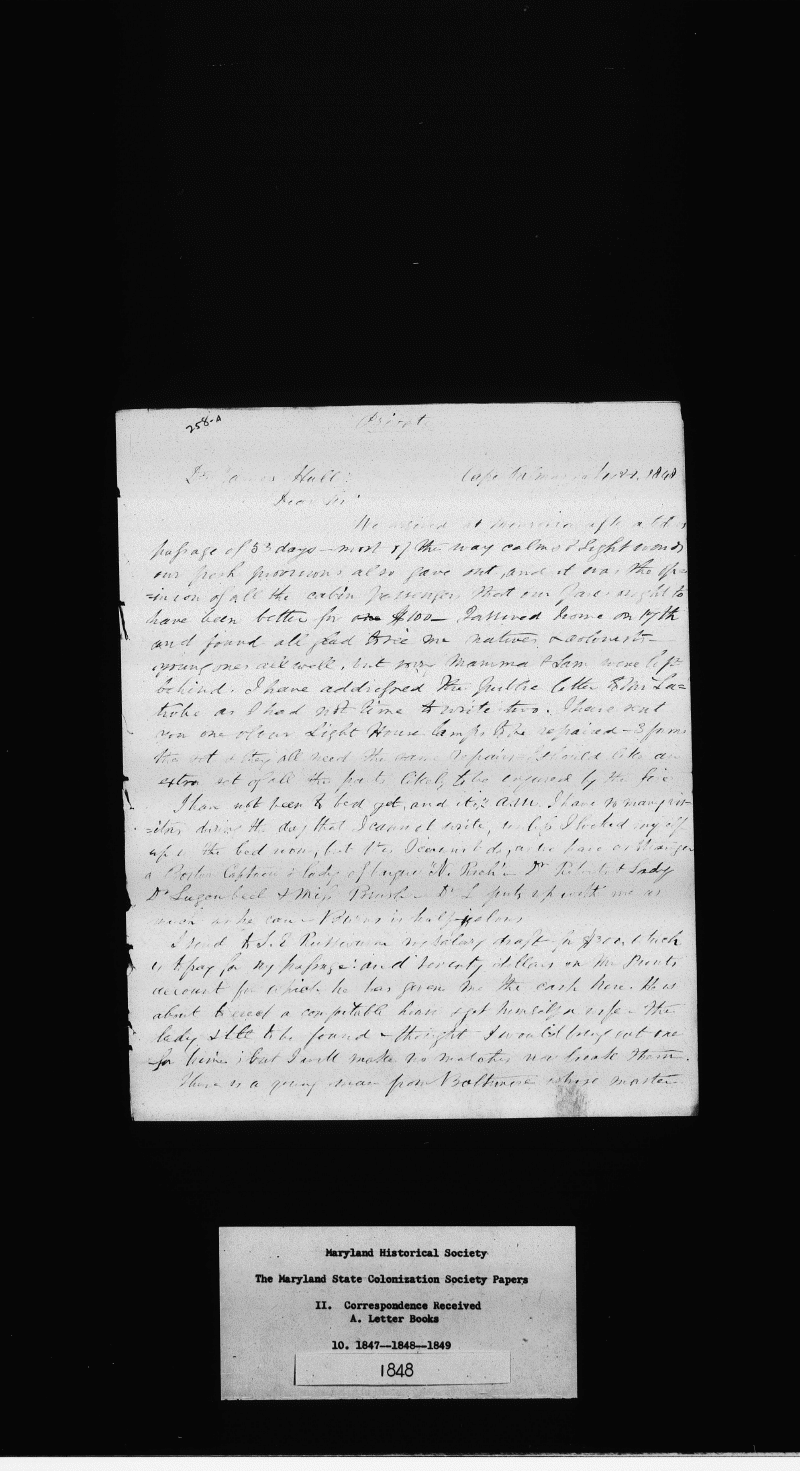 258-A
Privat
Dr James Hall: Cape Palmas 1848
Dear Sir:
We arrived at after a
passage of 53 days — most of the way calms & light winds
our fresh provisions also gave out, and it was the opi=
=nion of all the cabin passengers that our fare ought to
have been better for one $100 — I arrived home on 17th
and found all glad to see me natives & colonists —
young ones all well, but Mamma & Sam were left
behind. I have addressed the public letter to Mr La=
trobe as I had not time to write two. I have sent
you one of our Light House lamps to be repaired — 3
the set & they all need the same repairs I should like an
extra set of all the parts likely to be injured by the fire
I have not been to bed yet, and it is 2 A.M. I have so many vis=
=itors during the day that I cannot write, unless I locked myself
up in the bed room, but as we have as strangers
a Boston Captain & lady of brigue N. Rich — Dr Roberts & Lady
Dr Lugenbeel & Miss Brush — Dr L puts up with me as
much as he can — is half jealous
I send to my salary draft for $ which
is to pay for my passage: and seventy dollars on the
account for which he has given me the cash here. He is
about to erect a comfortable house & get himself a wife — The
lady still to be found — thought I would bring out one
for him; but I will make no matches nor break them.
There is a young man from Baltimore whose master
Maryland Historical Society
The Maryland State Colonization Society Papers
II. Correspondence Received
A. Letter Books
10. 1847--1848--1849
1848